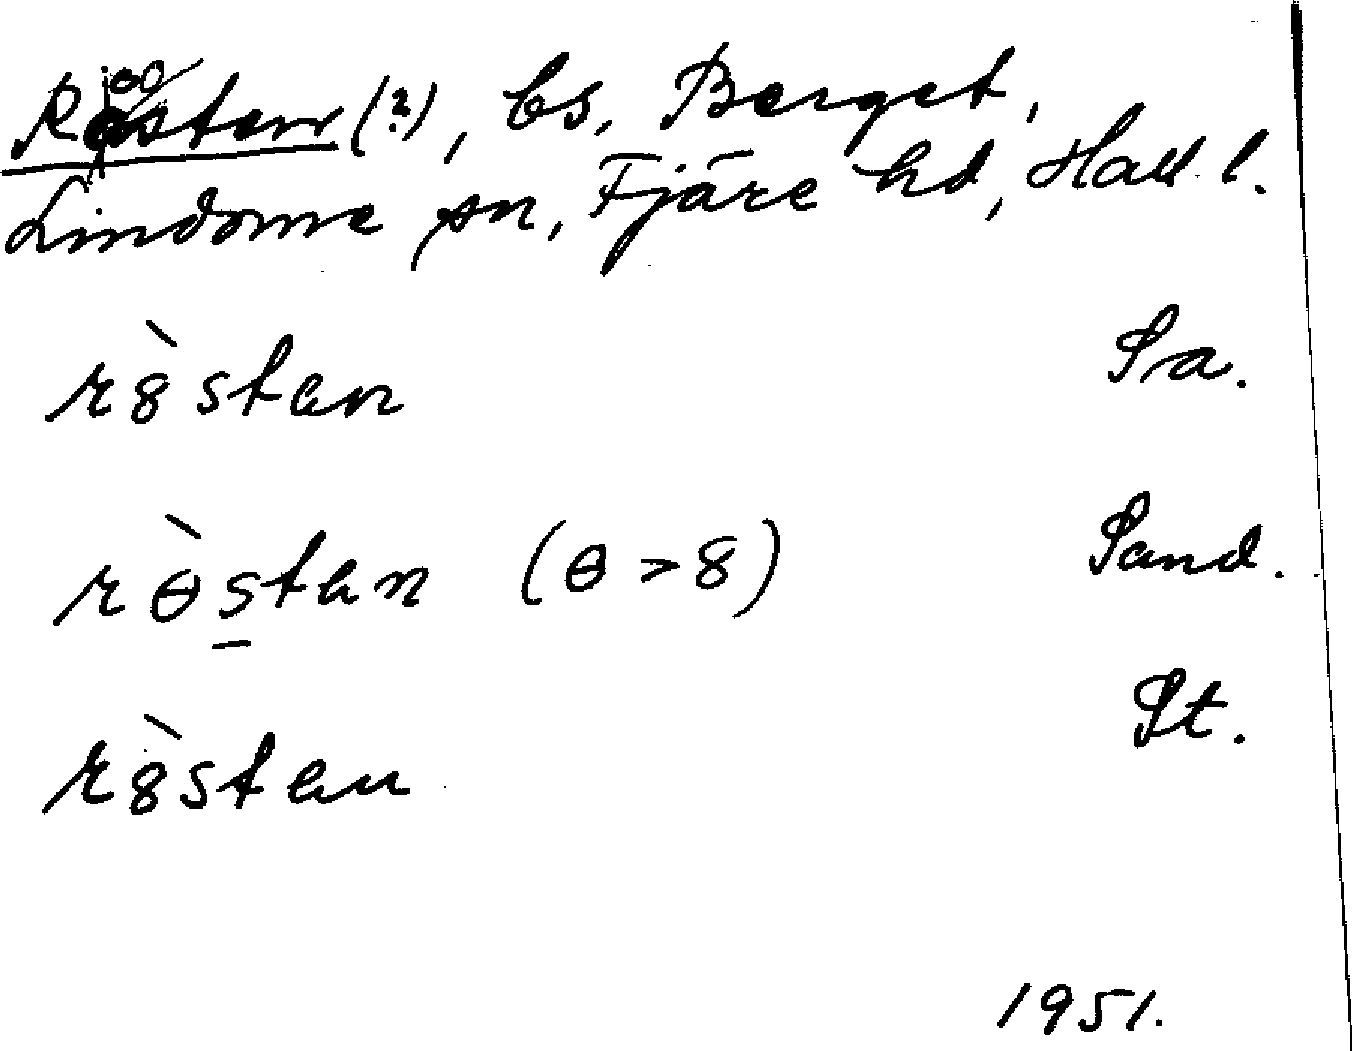 Røsten (?), bs, Berget,
Lindome sn, Fjäre hd, Hall. l.
rö̀stan Sa.
rɵ̀stan (ɵ > 8) Sand.
r8̀stan St.
1951.